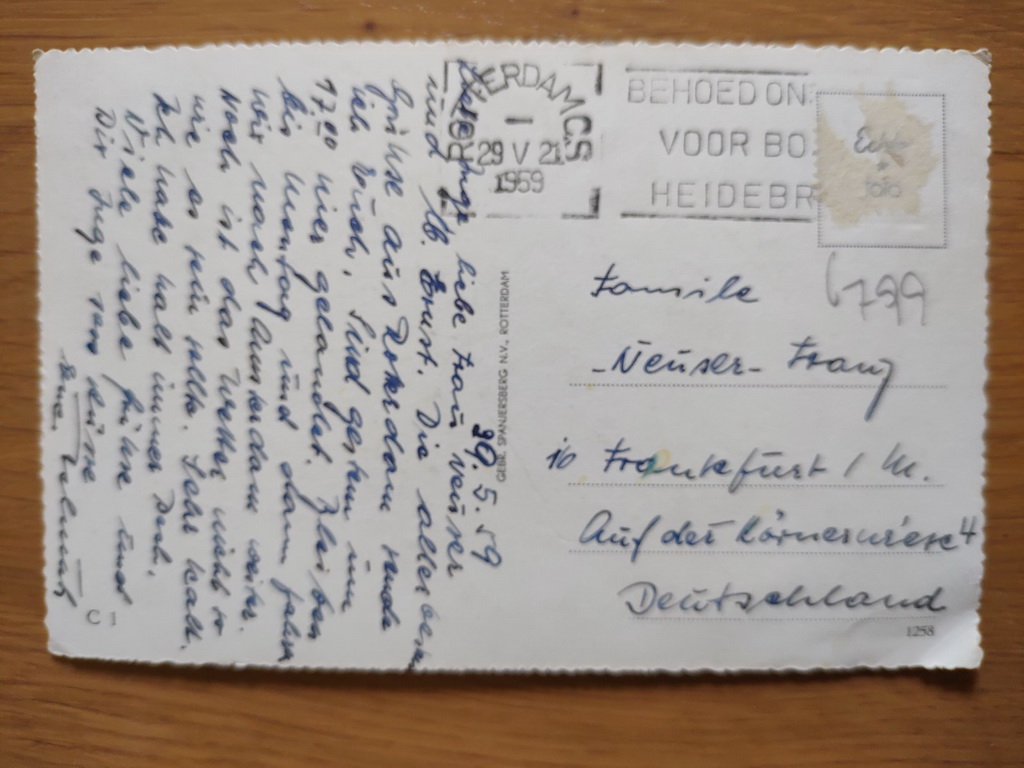 29.5.59
Liebe Inge, liebe Frau Neuser
und Ernst. Die allerbesten
Grüße aus Rotterdam sende
ich Euch. Sind gestern um
17.00 hier gelandet. Bleiben
bis Montag und dann fahren
wir nach Amsterdam weiter.
Noch ist das Wetter nicht so
wie es sein sollte. Sehr kalt.
Ich habe halt immer Pech.
Viele liebe Grüße und
Dir Inge
Helmut
C 1
GEBR. SPANJERSBERG N.V., ROTTERDAM
ROTTERDAM C.S
1
29 V 21
1959
BEHOED ON
VOOR BO
HEIDEBR
Echte
foto
6799
Familie
-Neuser- Franz
16 Frankfurt / M.
Auf der Körnerwiese 4
Deutschland
1258